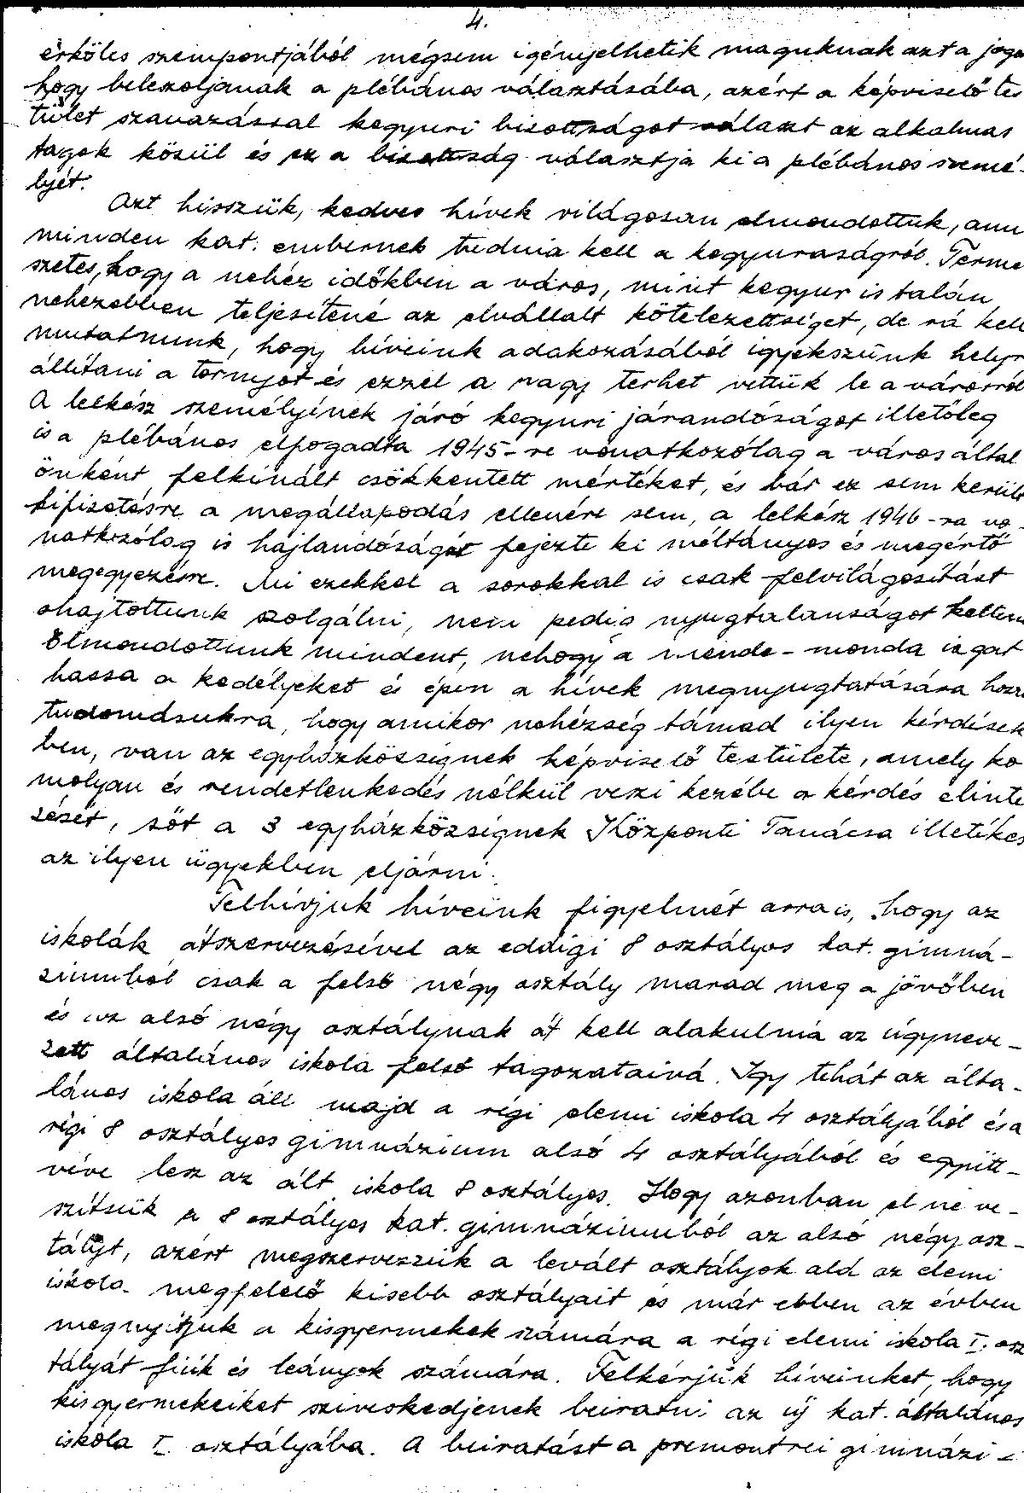 4.
erkölcs szempontjából mégsem igényelhetik maguknak azt a jogo
hogy beleszoljanak a plébános választásába, azért a képviselő tes
tület szavazással kegyuri bizottságot választ az alkalmas
tagok közül és ez a bizottság választja ki a plébános szemé-
lyét.
Azt hisszük, kedves hívek világosan elmondottuk, ami
minden kat. embernek tudnia kell a kegyuraságról. Terme
szetes, hogy a nehéz időkben a város, mint kegyur is talán
nehezebben teljesítené az elvállalt kötelezettséget, de rá kell
mutatnunk, hogy híveink adakozásából igyekszünk helyr
állítani a tornyot és ezzel a nagy terhet vettük le a városról
A lelkész személyének járó kegyuri járandóságot illetőleg
is a plébános elfogadta 1945-re vonatkozólag a város által
önként felkínált csökkentett mértéket, és bár ez sem került
kifizetésre a megállapodás ellenére sem, a lelkész 1946-ra vo-
natkozólag is hajlandóságát fejezte ki méltányos és megértő
megegyezésre. Mi ezekkel a sorokkal is csak felvilágosítást
ohajtottunk szolgálni, nem pedig nyugtalanságot kelteni
Elmondottunk mindent, nehogy a mende-monda izgat
hassa a kedélyeket és épen a hívek megnyugtatására hozz
tudomásukra, hogy amikor nehézség támad ilyen kérdések
ben, van az egyházközségnek képviselő testülete, amely ko
molyan és rendetlenkedés nélkül veszi kezébe a kérdés elinté
zését, sőt a 3 egyházközségnek Központi Tanácsa illetékes
az ilyen ügyekben eljárni.
Felhívjuk híveink figyelmét arra is, hogy az
iskolák átszervezésével az eddigi 8 osztályos kat. gimná-
ziumból csak a felső négy osztály marad meg a jövőben
és az alsó négy osztálynak át kell alakulnia az úgyneve-
zett általános iskola felső tagozataivá. Igy tehát az álta-
lános iskola áll majd a régi elemi iskola 4 osztályából és a
régi 8 osztályos gimnázium alsó 4 osztályából és együtt-
véve lesz az ált. iskola 8 osztályos. Hogy azonban el ne ve-
szítsük a 8 osztályos kat. gimnáziumból az alsó négy osz-
tályt, azért megszervezzük a levált osztályok alá az elemi
iskola megfelelő kisebb osztályait és már ebben az évben
megnyitjuk a kisgyermekek számára a régi elemi iskola I. osz
tályát fiúk és leányok számára. Felkérjük híveinket, hogy
kisgyermekeiket sziveskedjenek beiratni az új kat. általános
iskola I. osztályába. A beiratást a premontrei gimnázi-